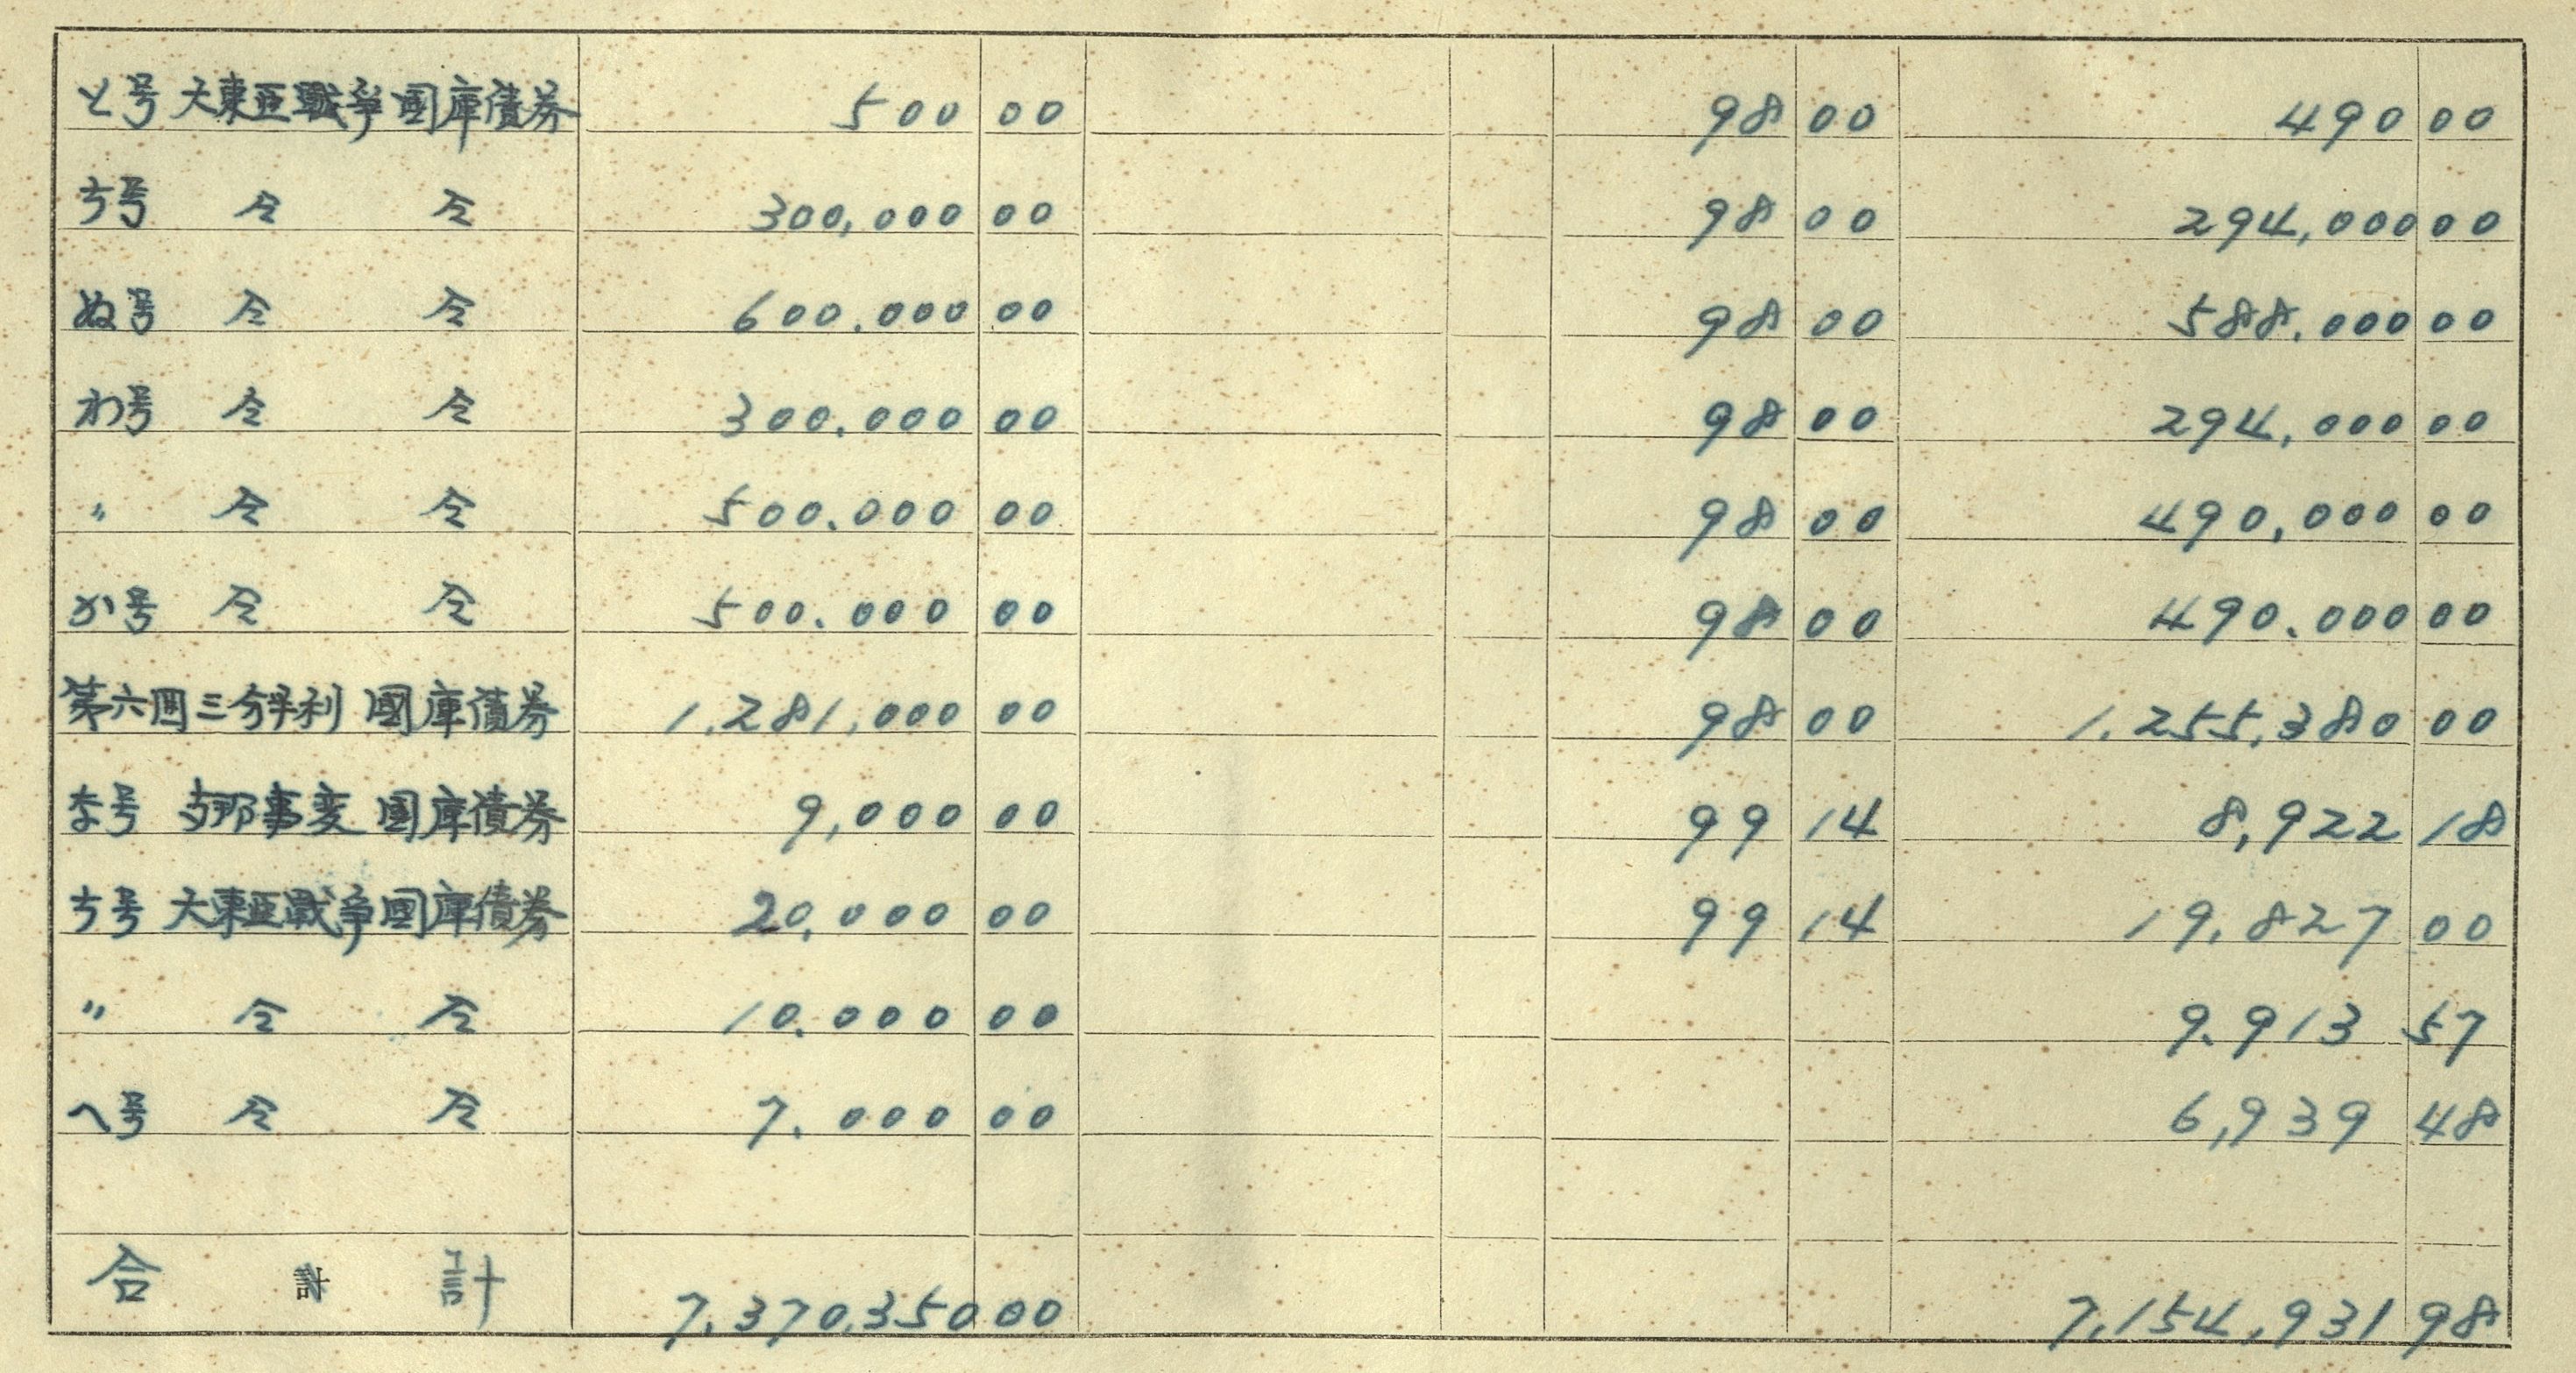 と号 大東亜戰爭國庫債券 500 00 98 00 490 00
ち号 仝 仝 300,000 00 98 00 294,000 00
ぬ号 仝 仝 600.000 00 98 00 588.000 00
わ号 仝 仝 300.000 00 98 00 294,000 00
〃 仝 仝 500.000 00 98 00 490,000 00
か号 仝 仝 500.000 00 98 00 490.000 00
第六回三分半利 國庫債券 1.281,000 00 98 00 1.255,380 00
な号 支那事変 國庫債券 9,000 00 99 14 8,922 18
ち号 大東亜戰爭國庫債券 20,000 00 99 14 19,827 00
〃 仝 仝 10.000 00 9.913 57
へ号 仝 仝 7.000 00 6,939 48
合 計 計 7,370,350 00 7,154,931 98